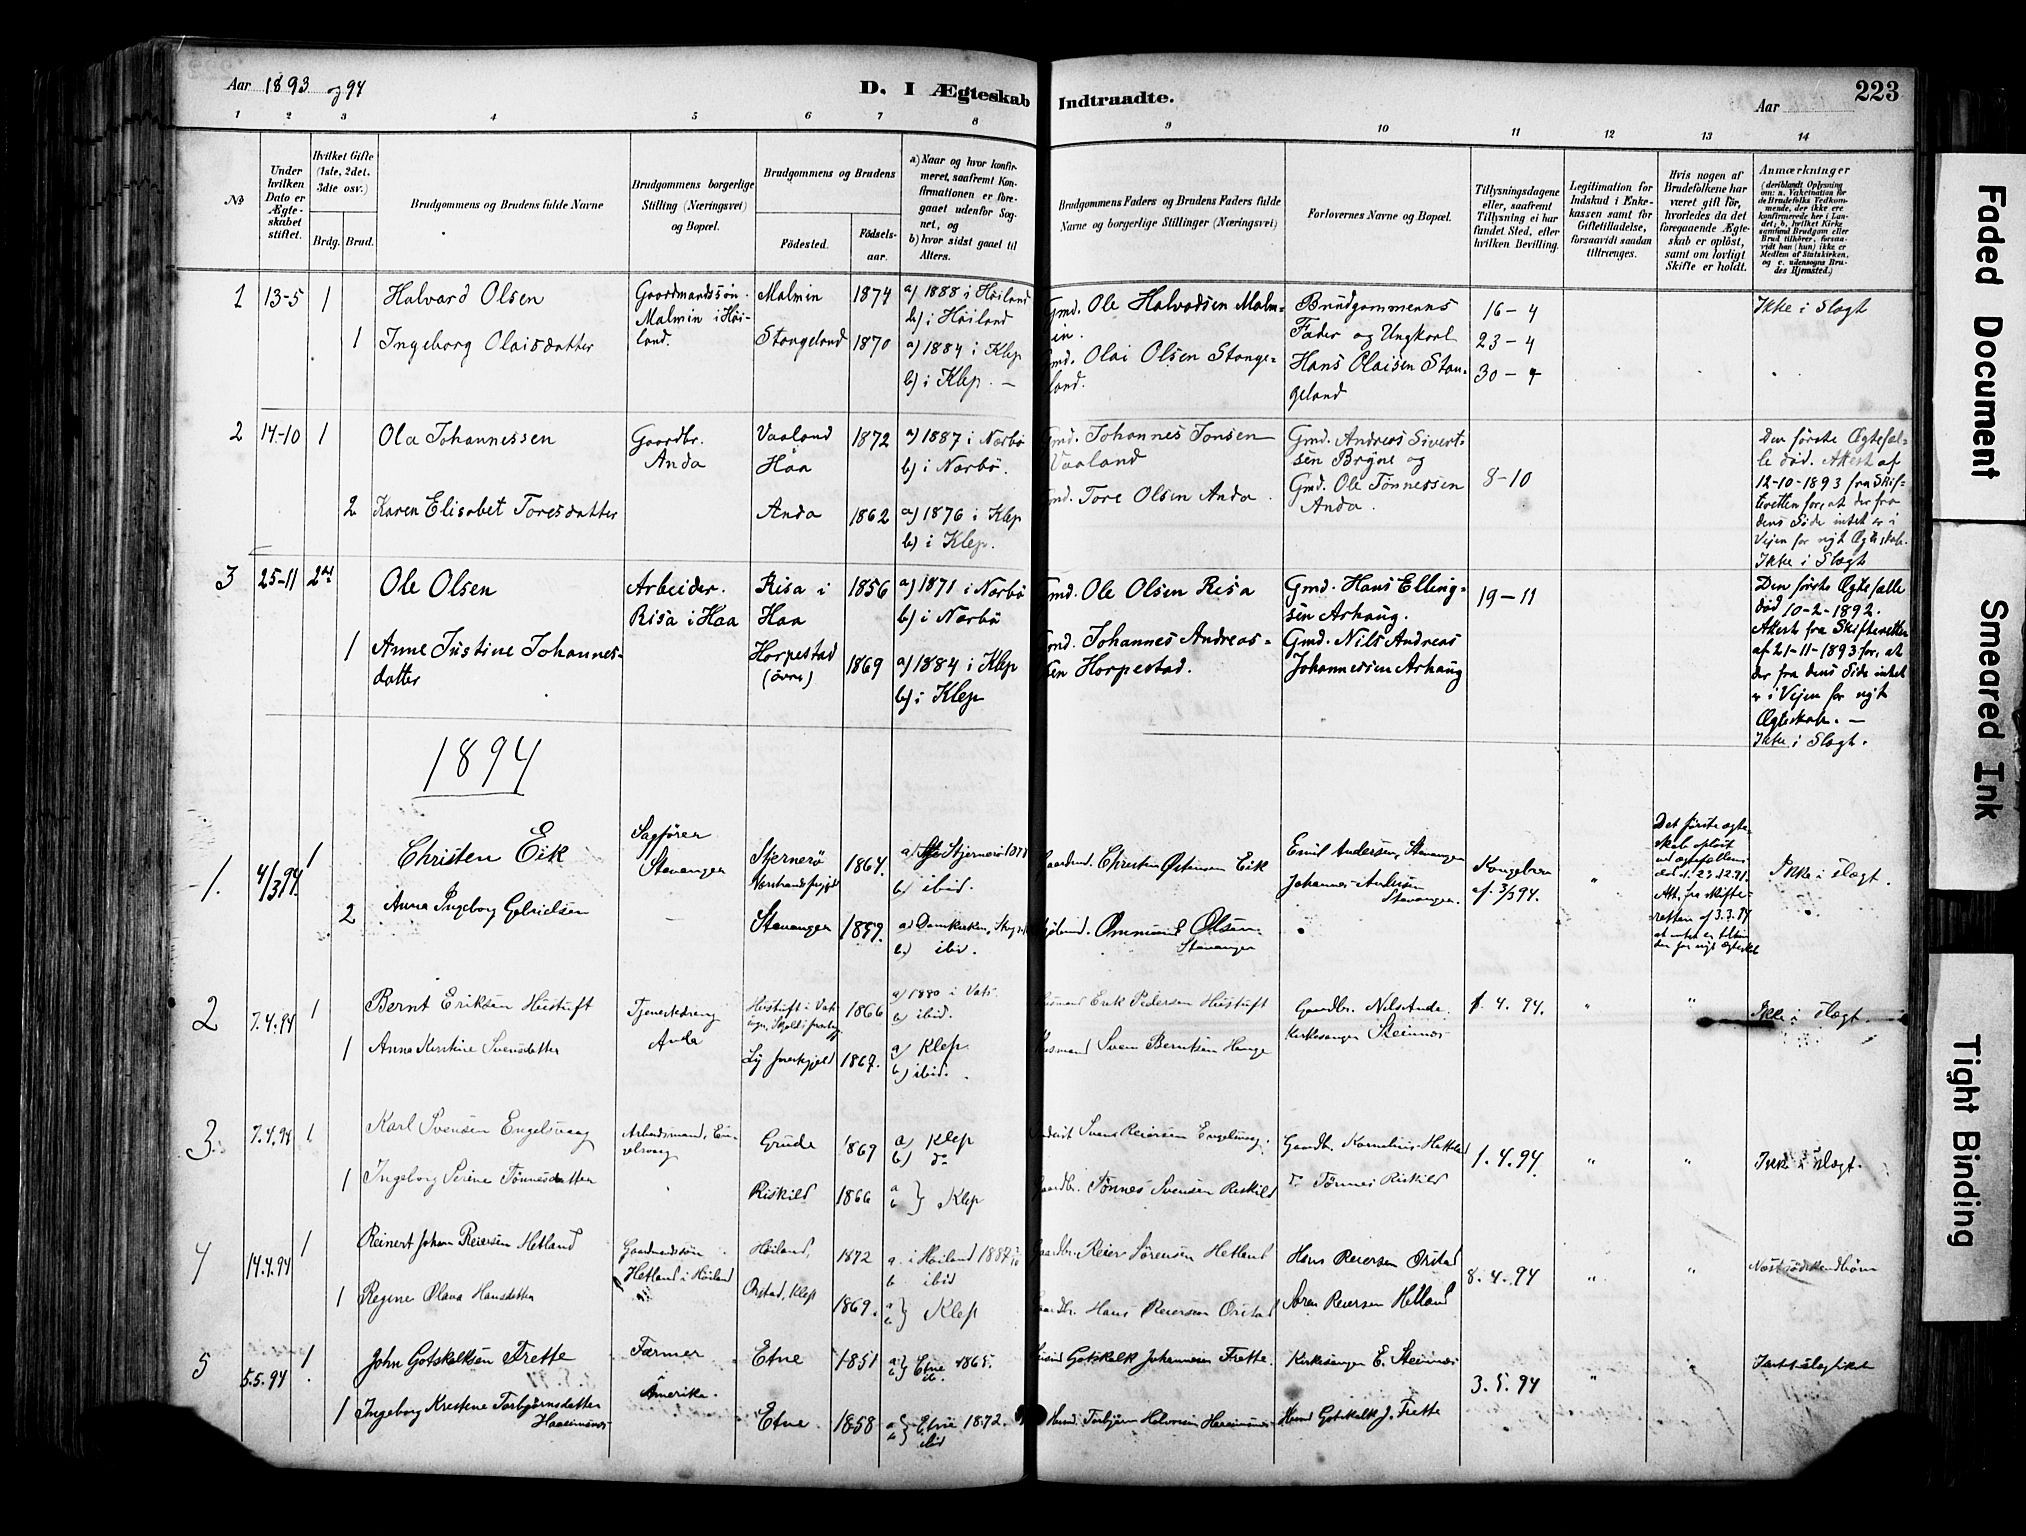 Aar 1893 og 94
D. I Ægteskab Indtraadte.
Aar
223
1 2 3 4 5 6 7 8 9 10 11 12 13 14
No
Under hvilken Dato er Ægteskabet stiftet.
Hvilket Gifte (1ste, 2det, 3die osv.)
Brdg. Brud.
Brudgommens og Brudens fulde Navne
Brudgommens borgerlige Stilling (Næringsvei) og Bopæl.
Brudgommens og Brudens
Fødested.
Fødselsaar.
a) Naar og hvor konfirmeret, saafremt Konfirmationen er foregaaet udenfor Sognet, og
b) hvor sidst gaaet til Alters.
Brudgommens Faders og Brudens Faders fulde Navne og borgerlige Stillinger (Næringsvei)
Forlovernes Navne og Bopæl.
Tillysningsdagene eller, saafremt Tillysning ei har fundet Sted, efter hvilken Bevilling.
Legitimation for Indskud i Enkekassen samt for Giftetilladelse, forsaavidt saadan tiltrænges.
Hvis nogen af Brudefolkene har været gift før, hvorledes da det foregaaende Ægteskab er opløst, samt om lovligt Skifte er holdt.
Anmærkninger
(deriblandt Oplysning om: a. Vakcination for de Brudefolks Vedkommende, der ikke ere konfirmerede her i Landet; b. hvilken Kirkesamfund Brudgom eller Brud tilhører, forsaavidt han (hun) ikke er Medlem af Statskirken, og c. udensogns Brudes Hjemsted.)
1 13-5 1 Halvard Olsen
Gaardmandssøn Malmin i Høiland.
Malmin 1874
a) 1888 i Høiland
b) i Høiland
Gmd. Ole Halvodsen Malmin.
Brudgommens Fader og Ungkarl Hans Olaisen Stangeland
16-4
23-4
30-4
Ikke i Slægt
1 Ingeborg Olaisdatter
Stangeland 1870
a) 1884 i Klep
b) i Klep. —
Gmd. Olai Olsen Stangeland.
2 14-10 1 Ola Johannessen
Gaardbr. Anda
Vaaland Haa 1872
a) 1887 i Nærbø
b) i Nærbø.
Gmd. Johannes Jonsen Vaaland
Gmd. Andreas Sivertsen Bryne og
Gmd. Ole Tønnessen Anda.
8-10
Den første Ægtefælle død. Attest af 12-10-1893 fra Skifteretten for, at der fra dens Side intet er i Vejen for nyt Ægteskab.
Ikke i Slægt
2 Karen Elisabet Toresdatter
Anda 1862
a) 1876 i Klep
b) i Klep.
Gmd. Tore Olsen Anda.
3 25-11 2det Ole Olsen
Arbeider. Risa i Haa
Risa i Haa 1856
a) 1871 i Nærbø
b) i Nærbø
Gmd. Ole Olsen Risa
Gmd. Hans Ellingsen Arhaug.
Gmd. Nils Andreas Johannessen Arhaug
19-11
Den første Ægtefælle død 10-2-1892. Attest fra Skifteretten af 21-11-1893 for, at der fra dens Side intet er i Vejen for nyt Ægteskab. —
Ikke i Slægt.
1 Anne Justine Johannesdatter
Horpestad (øvre) 1869
a) 1884 i Klep
b) i Klep
Gmd. Johannes Andreassen Horpestad.
1894
1. 4/3 94. 1 Christen Eik
Sagfører Stavanger
Stjernerø 1864.
b. ibid.
Christen Østensen Eik
Emil Andersen, Stavanger
Johannes Andersen Stavanger.
Kongebrev af 3/3 94.
"
Det første ægteskab opløst ved ægtefællens død d. 23.12.91. Att. fra skifteretten af 3.3.94
Ikke i slægt.
2 Anna Ingeborg Gabrielsen
Stavanger
a) Domkirken,
b. ibid.
Ommund Olsen Stavanger
2 7.4.94 1 Bernt Eriksen Hustuft
Tjenestedreng Anda
1866
a) 1880 i Vats.
b. ibid.
Erik Pedersen Hustuft
Gaardbr. Nils Anda.
Kirkesanger Steinnes
1. 4. 94.
" "
Ikke i slægt.
1 Anna Kirstine Svensdatter
1867.
a) Klep.
b) ibid.
Husmand Sven Berntsen Hauge
3. 7.4.94 1. Karl Svensen Engelsvaag
Arbeidsmand, Engelsvaag
Grude 1869
a) Klep
b) do
Svend Reiersen Engelsvaag.
Gaardbr. Kornelius Hetland
do Tønnes Riskild
1. 4. 94.
" "
Ikke i slægt.
1 Ingeborg Serine Tønnesdatter
Riskild 1866
a b } Klep
Gaardbr. Tønnes Svensen Riskild
4 14.4.94 1 Reinert Johan Reiersen Hetland
Gaardmandssøn Hetland i Høiland
Høiland, 1872
a. i Høiland 1887
b ibid
Gaardbr. Reier Sørensen Hetland
Hans Reiersen Orstad
Søren Reiersen Hetland
8. 4. 94
" "
Næstsødskendebørn
1 Regine Olava Hansdatter
Orstad, Klep 1869.
a b } Klep
Gaardbr. Hans Reiersen Orstad
5 5.5.94 1 John Gotskalksen Frette
Farmer Amerika.
Etne 1851
a b } Etne 1865. ib.
Gotskalk Johannesen Frette.
Kirkesanger E. Steinnes
Gotskalk J. Frette
3. 5. 94
"
1 Ingeborg Kristene Torbjørnsdatter
Etne. 1858
a b } Etne 1872. ibid
Torbjørn Halvorsen
Faded Document
Smeared Ink
Tight Binding